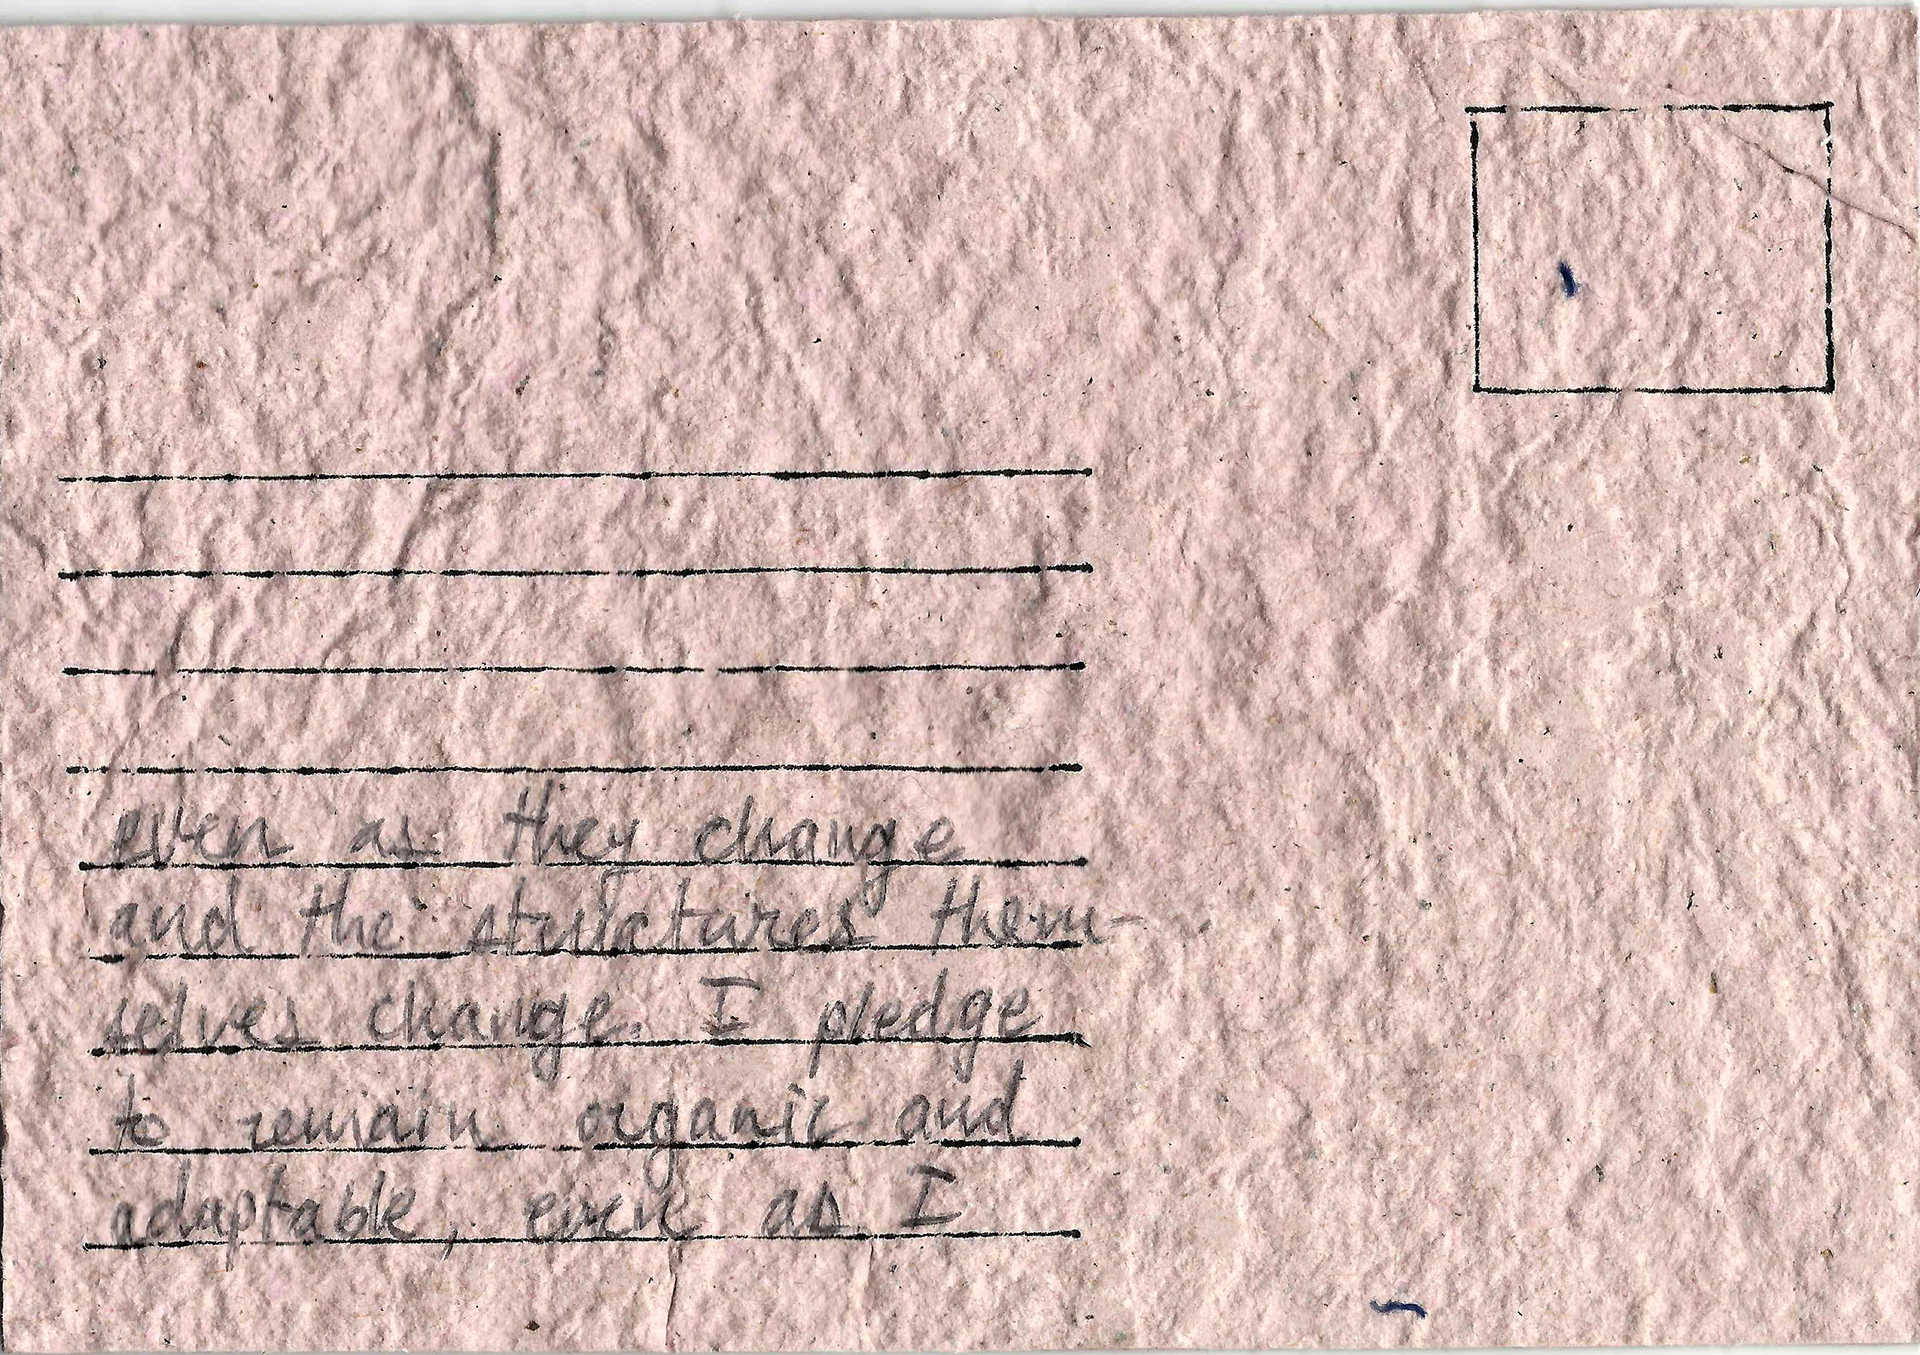 even as they change
and the structures them-
selves change. I pledge
to remain organic and
adaptable, even as I